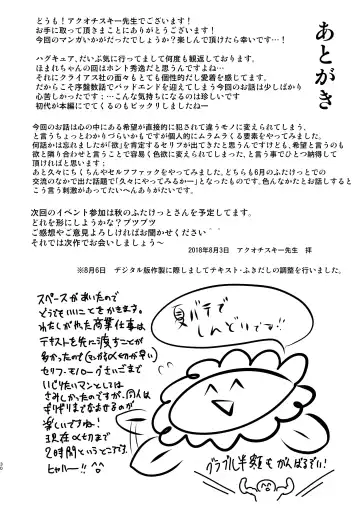 あとがき
どうも！アクオチスキー先生でございます！
お手に取って頂きまことにありがとうございます！
今回のマンガいかがだったでしょうか？楽しんで頂けたら幸いです…！
ハグキュア、だいぶ気に行ってまして何度も観返しております。
ほまれちゃんの回はホント秀逸だと思うんですよね…
それにクライアス社の面々もとても個性的だし愛着を感じてます。
だからこそ序盤数話でバッドエンドを迎えてしまう今回のお話は少しばかり
心苦しかったです；…こんな気持ちになるのは珍しいです
初代が本編にでてくるのもビックリしましたねー
今回のお話は心の中にある希望が直接的に犯されて違うモノに変えられてしまう、
と言うちょっとわかりづらいかもですが個人的にムラムラくる要素をやってみました。
何話かは忘れましたが「欲」を肯定するセリフが出てきたと思うんですけども、希望と言うのも
欲と隣り合わせと言うことで容易く色欲に変えられてしまった、と言う事でひとつ納得して
頂ければと思います；
あと久々にちくちんやセルフファックをやってみました。どちらも6月のふたけっとでの
交流のなかで出た話題で「久々にやってみるかー」となったものです。色んなかたとお話しすると
こう言う刺激があってたいへんありがたいです。
次回のイベント参加は秋のふたけっとさんを予定してます。
どれを形にしようかな？ブツブツ
ご感想やご意見よろしければお聞かせください
それでは次作でお会いしましょう～
2018年8月3日　アクオチスキー先生　拝
※8月6日　デジタル版作製に際しましてテキスト・ふきだしの調整を行いました。
スペースがあいたので
どうでもいいことをかきます。
わたしがやれた商業仕事は
テキストを先に渡すことが
多かったので
セリフ・モノローグさいごまで
いじりたいマンとしては
さみしかったのですが、同人は
ギリギリまでなおせるのが
楽しいですね！
現在〆切まで
2時間というところです
ヒャハー!!
夏バテで
しんどいです!!
グラブル半額もがんばるぞい!